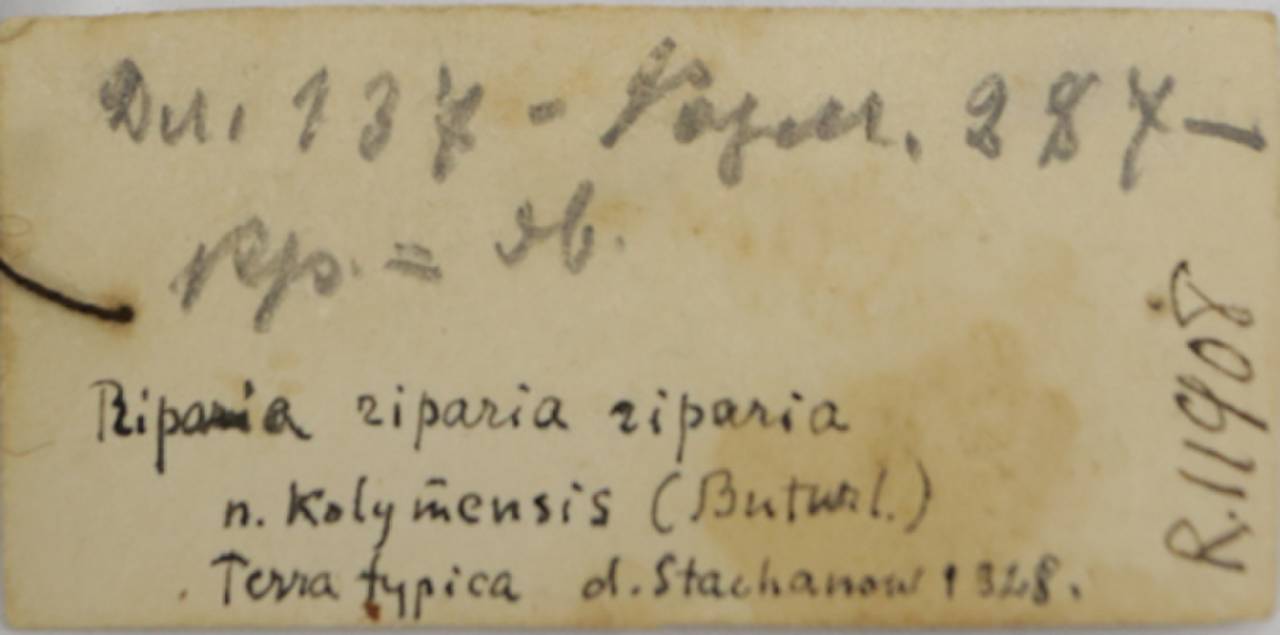 Дл. 137 - Разм. 287 -
Кр. = 
Riparia riparia riparia
n. Kolymensis (Buturl.)
Terra typica d. Stachanow 1928.
R.11908